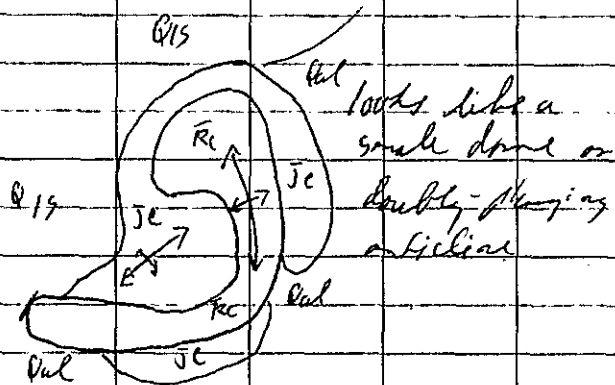 Q1s
Qal
looks like a
small dome or
doubly-plunging
anticline
R̄c
Je
Q1s
Je
R̄c
Qal
Je
Qal